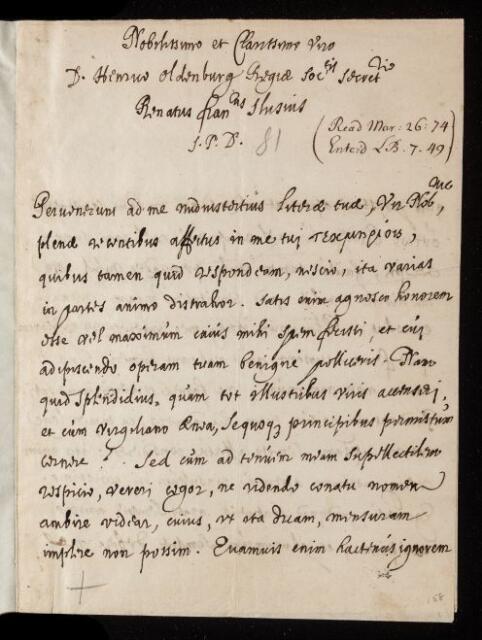 Nobilissimo et Clarissimo Viro
D. Henrico Oldenburg Regiæ Soc^tis Secret^rio
Renatus Fran^cus Slusius
S. P. D.
81
(Read Mar: 26: 74)
(Enterd L.B. 7. 49)
Pervenerunt ad me nudiustertius literæ tuæ, Vir Nob^me,
plenæ recentibus affectus in me tui τεκμηρίοις,
quibus tamen quid respondeam, nescio, ita varias
in partes animo distrahor. Satis enim agnosco honorem
esse vel maximum cuius mihi spem fecisti, et cui
adipiscendo operam tuam benignè polliceris. Nam
quid splendidius, quàm tot illustribus viris accenseri,
et cùm Virgiliano Ænea, se quoq; principibus permistum
cernere? Sed cùm ad tenuem meam supellectilem
respicio, vereri cogor, ne ridendo conatu nomen
ambire videar, cuius, ut ita dicam, mensuram
implere non possim. Quamvis enim hactenus ignorem
158